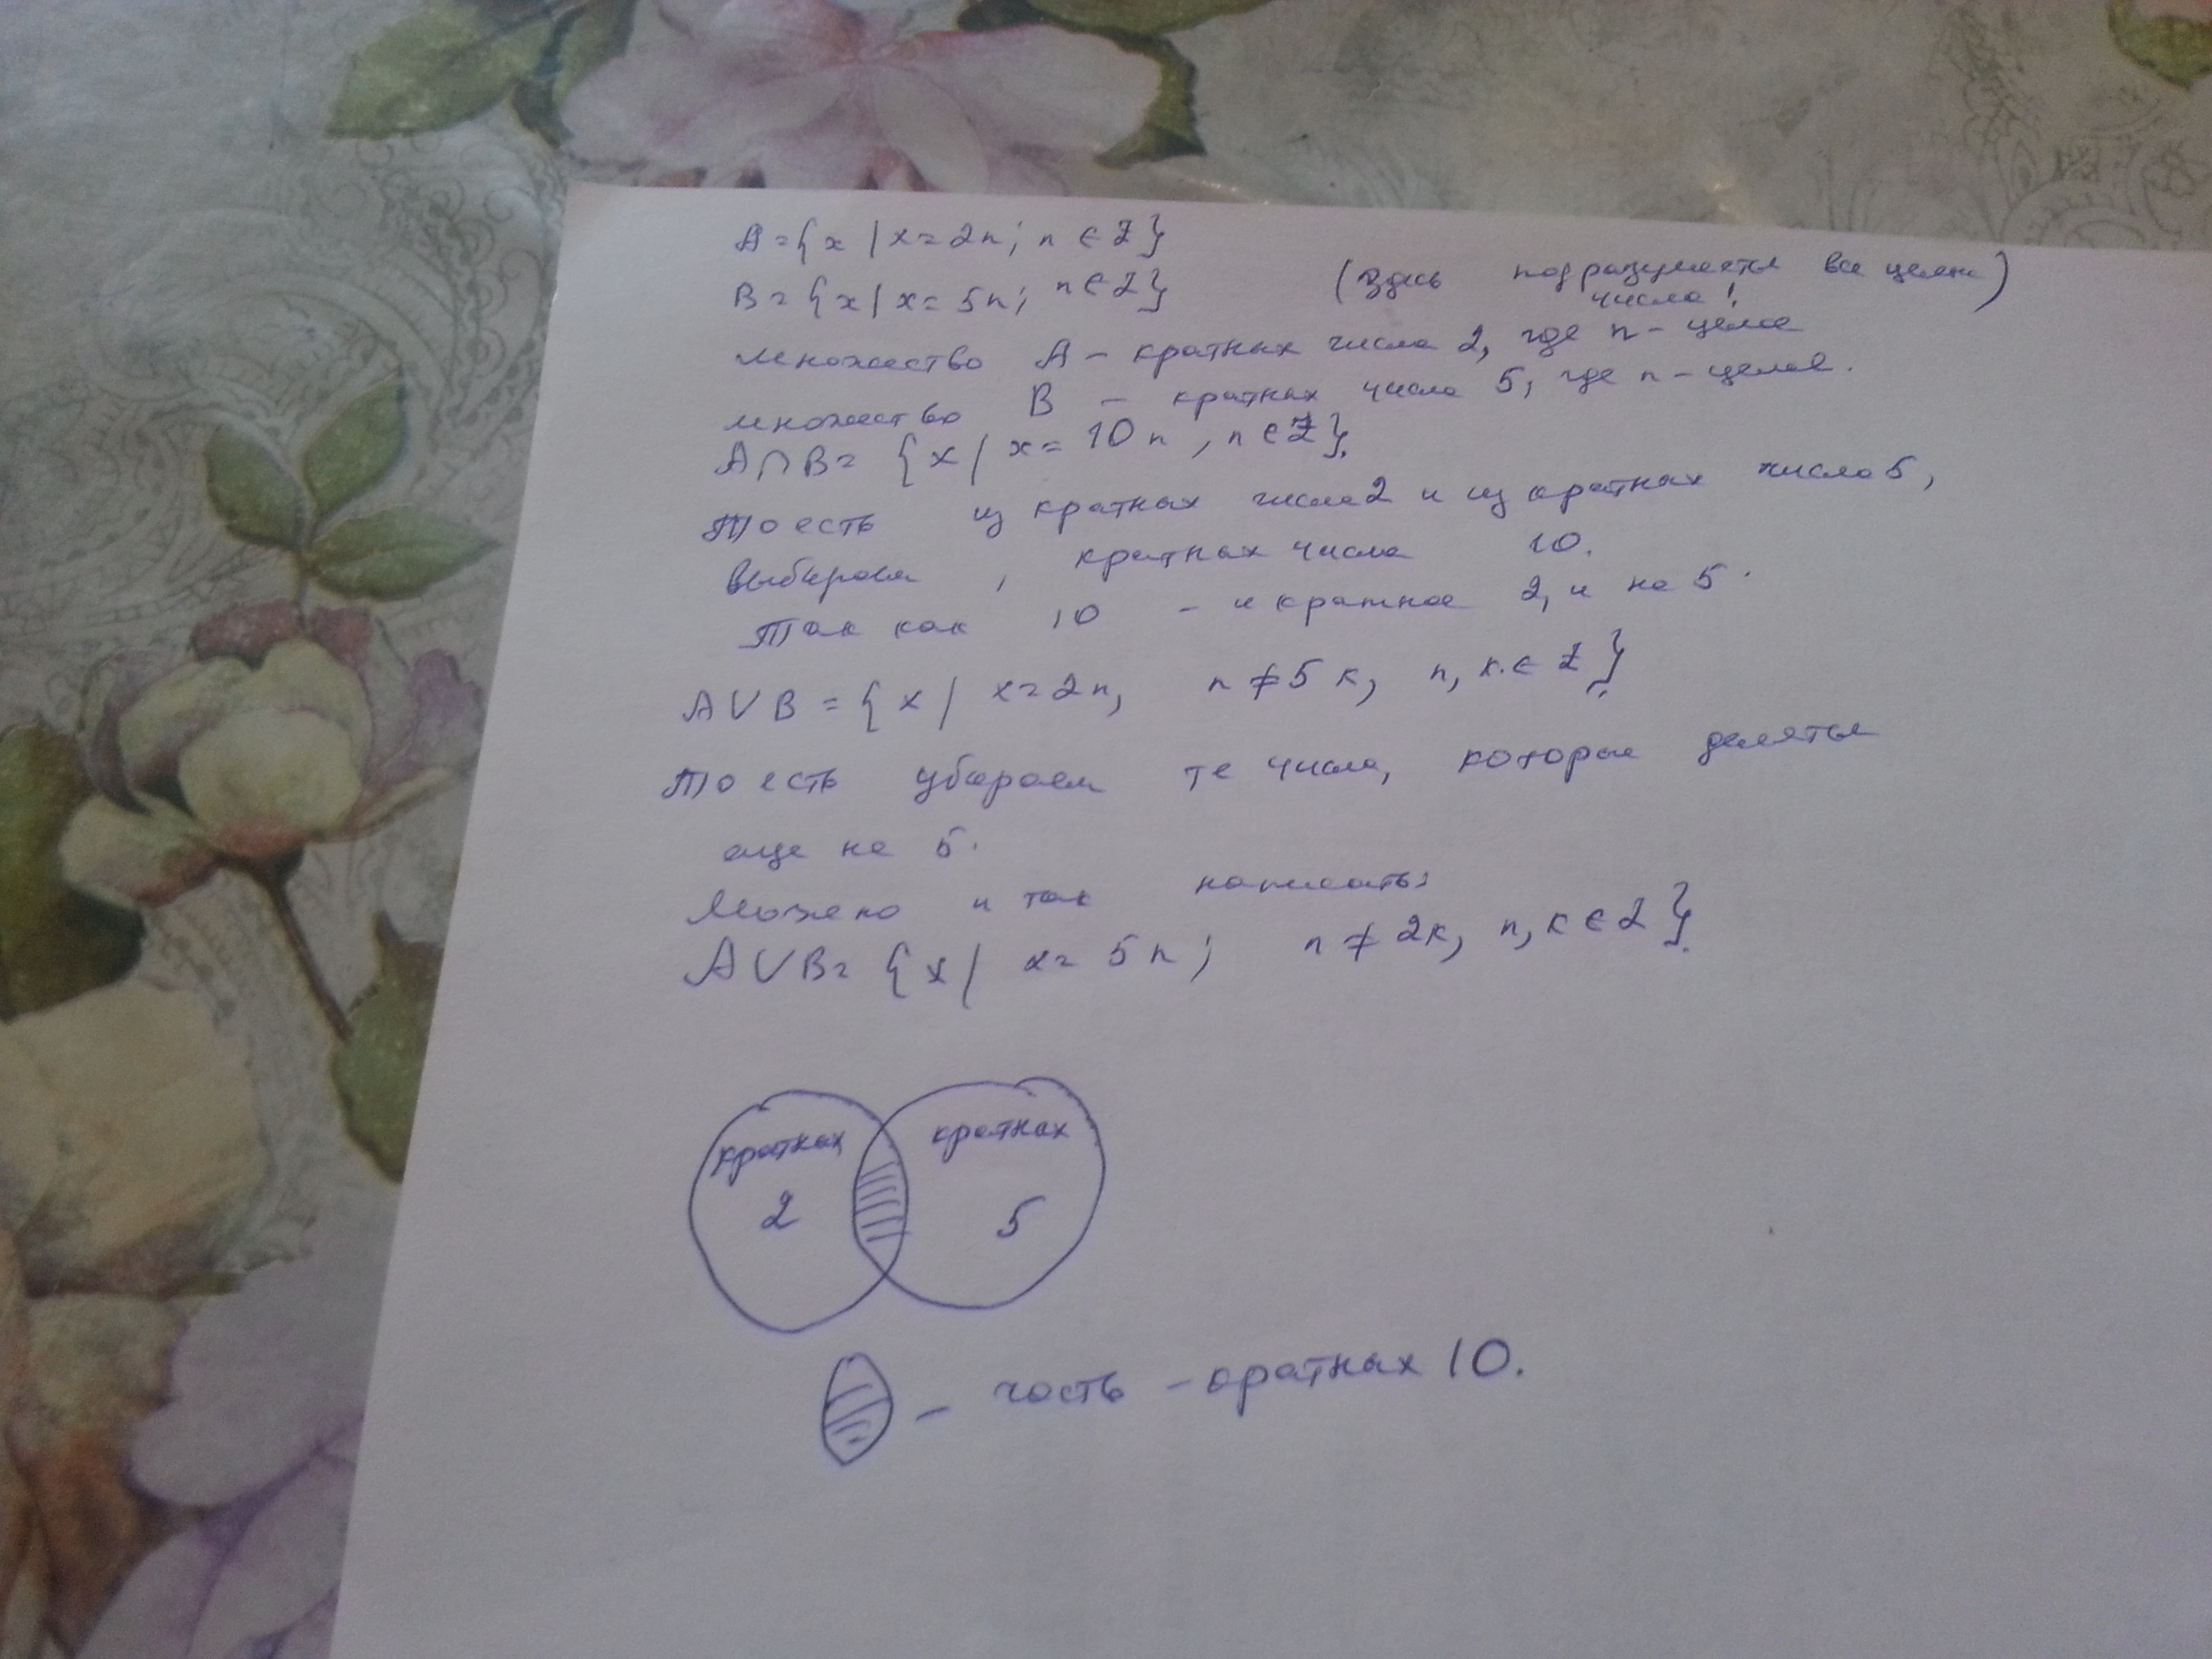 A={x | x=2n; n ∈ Z}
B={x | x=5n; n ∈ Z} (здесь подразумеваются все целые числа!)
множество A - кратных числа 2, где n - целое
множество B - кратных числа 5, где n - целое.
A∩B= {x | x= 10n, n ∈ Z}.
То есть из кратных числа 2 и из кратных числа 5,
выбираем , кратных числа 10.
Так как 10 - и кратное 2, и на 5.
A∪B = {x | x=2n, n ≠ 5k, n, k ∈ Z}.
То есть убираем те числа, которые делятся
еще на 5.
Можно и так написать:
A∪B= {x | x= 5n; n ≠ 2k, n, k ∈ Z}.
кратных
2
кратных
5
- часть - кратных 10.